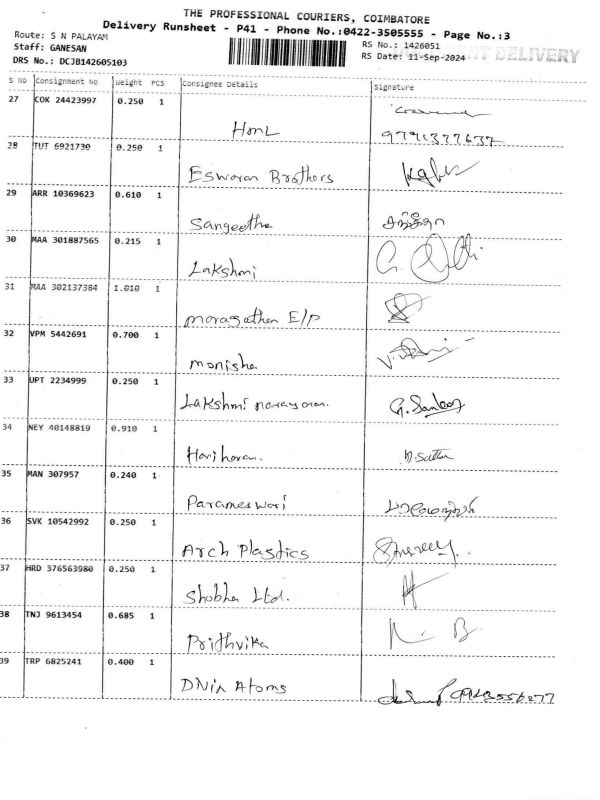 THE PROFESSIONAL COURIERS, COIMBATORE
Delivery Runsheet - P41 - Phone No.:0422-3505555 - Page No.:3
Route: S N PALAYAM
RS No.: 1426051
DELIVERY
Staff: GANESAN
RS Date: 11-Sep-2024
DRS No.: DCJB142605103
S NO Consignment No Weight PCS Consignee Details Signature
27 COK 24423997 0.250 1
HML 9791377637
28 TUT 6921730 0.250 1
Eswaran Brothers
29 ARR 10369623 0.610 1
Sangeetha
30 MAA 301887565 0.215 1
Lakshmi
31 MAA 302137384 1.010 1
maragathan E/P
32 VPM 5442691 0.700 1
monisha
33 UPT 2234999 0.250 1
Lakshmi narayanan.
34 NEY 40148819 0.910 1
Hariharan.
35 MAN 307957 0.240 1
Parameswari
36 SVK 10542992 0.250 1
Arch Plastics
37 HRD 376563980 0.250 1
Shobha Ltd.
38 TNJ 9613454 0.685 1
Prithvika
39 TRP 6825241 0.400 1
Atoms